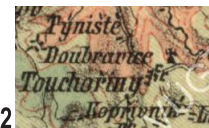 Týniště
Doubravice
Touchořiny
Kopřivník
2